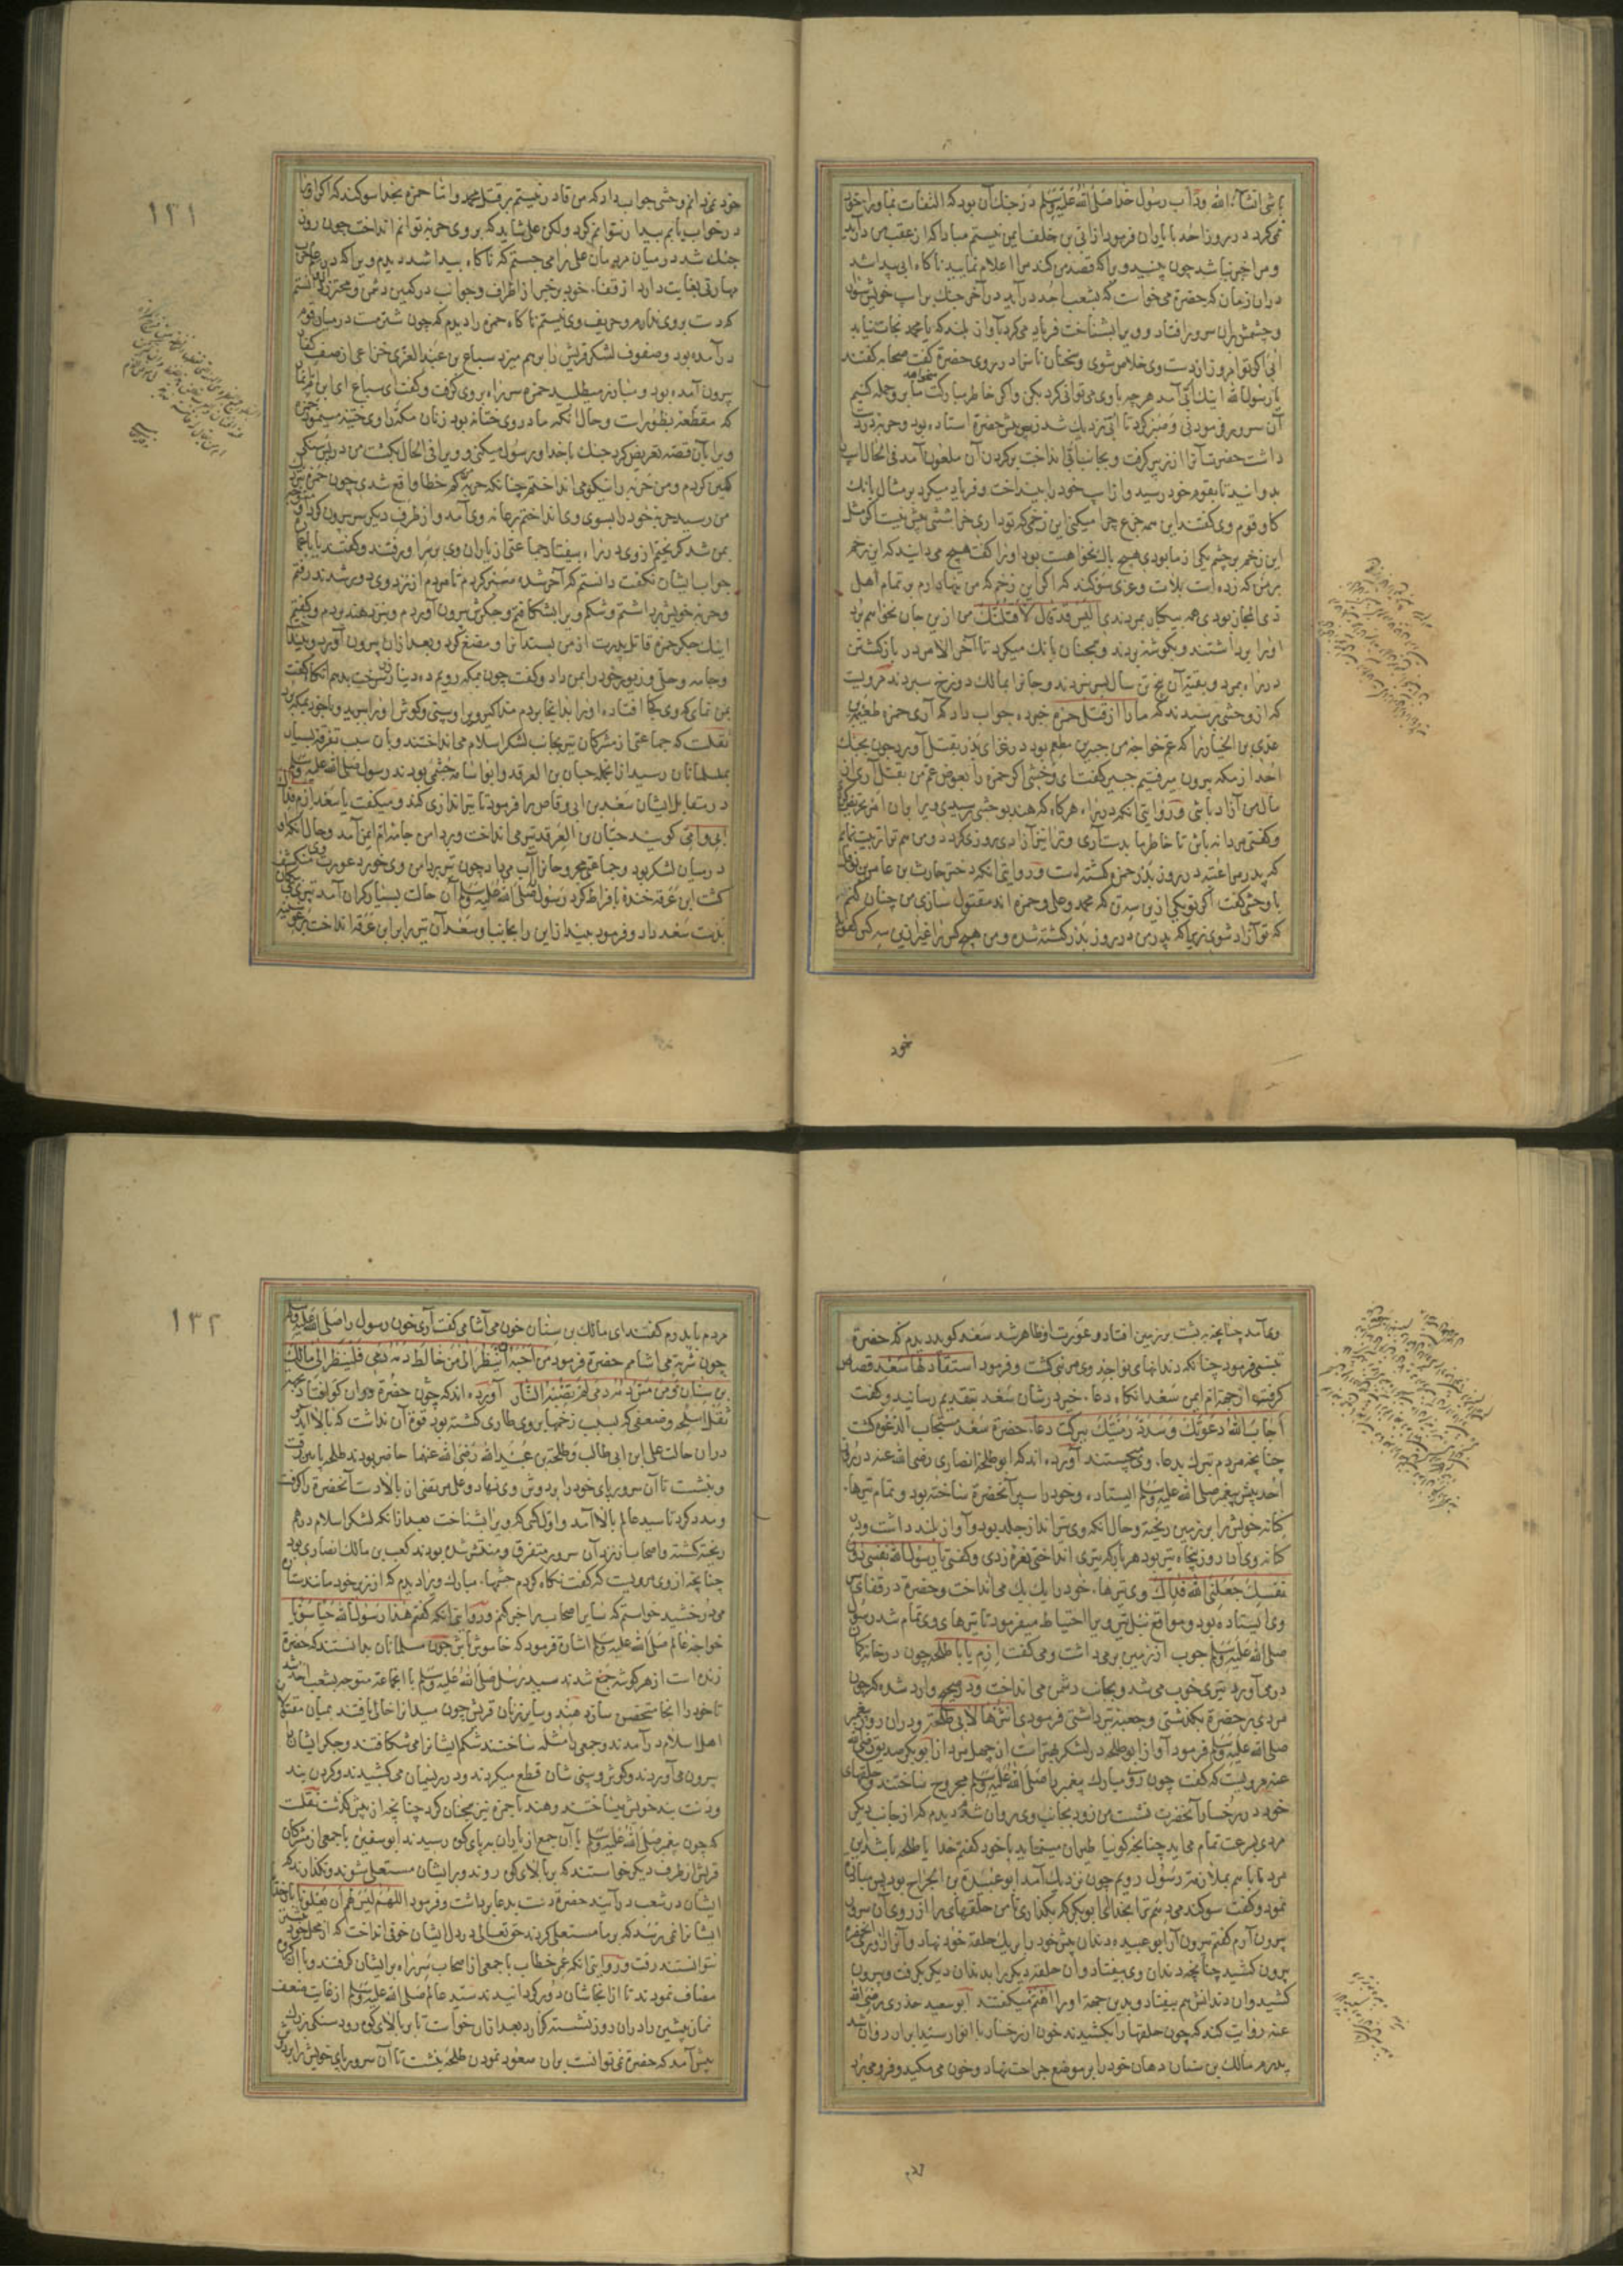 باشی انشاء الله وداب رسول خدا صلی الله علیه وسلم در جنك آن بود که التفات بماوراء خود
نمی‌کرد در روز احد با یاران فرمود از ابی بن خلف ایمن نیستم مبادا که از عقب من در آید
و مرا خبر نباشد چون چنید ویرا که قصد من کند مرا اعلام نمایید ناکاه ابی پیدا شد
دران زمان که حضرة می‌خواست که بشعب احد در آید در آخر جنك بر اسپ خویش سوار
و چشمش بران سرور افتاد و ویرا بشناخت فریاد می‌کرد بآواز بلند که یا محمد نجات نیابد
ابی اکر تو امروز از دست وی خلاص شوی و سخنان ناسزا در روی حضرة کفت صحابه کفتند
یا رسول الله اینك ابی آمد هر چه با وی می‌توانی کرد بکن واکر خاطر مبارکت میخواهد ما بر وی حمله کنیم
آن سرور فرمود نی و صبر کرد تا ابی نزدیك شد زبیر پیش حضرة استاده بود و حربه در دست
داشت حضرت آنرا از زبیر کرفت و بجانب ابی انداخت بر کردن آن ملعون آمد فی الحال اسپ
بدوانید تا بقوم خود رسید و از اسپ خود را بینداخت و فریاد میکرد بر مثال بانك
کاو قوم وی کفتند این همه جزع چرا میکنی این زخمی که تو داری خراشی بیش نیست اکر مثل
این زخم بر چشم یکی از ما بودی هیچ باك نخواهت بود او را کفت هیچ می‌دانید که این زخم
بر من که زده است بلات و عزی سوکند که اکر این زخم که من تنها دارم بر تمام اهل
ذی المجاز بودی همه بیکبار بمردندی الیس قد قال لاقتلنك من ازین جان نخواهم برد
او را برداشتند و بکوشه بردند و همچنان بانك میکرد تا آخر الامر در بازکشتن
در راه بمرد و بقیه آن پنج تن سال بسر نبردند و جانرا بمالك دوزخ سپردند مرویست
که از وحشی پرسیدند که ما را از قتل حمزه خبر ده جواب داد که آری حمزه طعیمه بن
عدی بن الخیار را که عم خواجه من جبیر بن مطعم بود در غزای بدر بقتل آورد چون بجنك
احد از مکه بیرون میرفتیم جبیر کفت ای وحشی اکر حمزه را بعوض عم من بقتل آری از
مال من آزاد باشی و در روایتی انکه در راه هرکاه که هند بوحشی رسیدی ویرا بران امر تحریض کردی
و کفتی مردانه باش تا خاطر ما بدست آری و ترا نیز آزادی روزی کردد و من هم ترا تربیت نمایم
که پدر من عتبه در روز بدر حمزه کشته است و در روایتی انکه دختر حارث بن عامر بن نوفل
با وحشی کفت اکر تو یکی ازین سه تن که محمد و علی و حمزه اند مقتول سازی من چنان کنم
که تو آزاد شوی زیرا که پدر من در روز بدر کشته شده و من هیچ کس را غیر ازین سه کس کفو
خود
١٣١
خود نمی‌دانم وحشی جواب داد که من قادر نیستم بر قتل محمد و اما حمزه بخدا سوکند که اکر او را
در خواب یابم بیدار نتوانم کرد ولکن علی شاید که بر وی حربه توانم انداخت چون روز
جنك شد در میان مردمان علی را می‌جستم که ناکاه پیدا شد دیدم ویرا که در
مهارتی بغایت دارد از قفاء خود پر حذر از اطراف و جوانب در کمین دشمن و محترز دانستم
که دست بروی ندارم و حریف وی نیستم ناکاه حمزه را دیدم که چون شتر مست در میان قوم
در آمده بود و صفوف لشکر قریش را بر هم میزد سباع بن عبد العزی خزاعی از صف کفار
بیرون آمده بود و مبارز میطلبید حمزه سر راه بر وی کرفت و کفت ای سباع ای ابن ام انمار
که مقطعه بظورات و حال آنکه مادر وی ختانه بود زنان مکه را وی ختنه مینمود حمزه
ویرا بآن قصه تعریض کرد جنك با خدا و رسول میکنی و ویرا فی الحال بکشت من در پس سنکی
کمین کردم و من حربه را نیکو می‌انداختم چنانکه حربه من کم خطا واقع شدی چون حمزه نزدیك
من رسید حربه خود را بسوی وی انداختم بر عانه وی آمد و از طرف دیکر سر بیرون کرد
بمن شد کریختم از وی در راه بیفتاد جماعتی از یاران وی بر سر او رفتند و کفتند یا با عماره
جواب ایشان نکفت دانستم که آخر شده صبر کردم تا مردم از نزد وی دور شدند رفتم
و حربه خویش برداشتم و شکم ویرا بشکافتم و جکرش بیرون آوردم و نزد هند بردم و کفتم
اینك جکر حمزه قاتل پدرت از من بستد آنرا و مضغ کرد و بعد از آن بیرون آورد و بینداخت
و جامه و حلی و زیور خود را بمن داد و کفت چون بمکه رویم ده دینار زر سرخت بدهم انکاه کفت
بمن نمای که وی کجا افتاده او را بدانجا بردم مذاکیر ویرا و بینی و کوش او را برید و با خود بمکه برد
نقلست که جماعتی از مشرکان تیر بجانب لشکر اسلام می‌انداختند و بآن سبب تفرقه بسیار
بمسلمانان رسید از انجمله حبان بن العرقه و ابو اسامه جشمی بودند رسول صلی الله علیه وسلم
در مقابل ایشان سعد بن ابی وقاص را فرمود تا تیر اندازی کند و میکفت یا سعد ارم فداك
ابی و امی کویند حبان بن العرقه تیر می انداخت و بر دامن جامه ام ایمن آمد و حال آنکه او
در میان لشکر بود و جماعتی مجروحانرا آب می‌داد چون تیر بدامن وی خورد عورت وی منکشف
کشت ابن عرقه خنده بافراط کرد رسول صلی الله علیه وسلم آن حالت بسیار کران آمد تیری بی‌پیکان
بدست سعد داد و فرمود بینداز این را بجانب او سعد آن تیر را بر ابن عرقه انداخت
وی آمد چنانچه به پشت بر زمین افتاد و عورت او ظاهر شد سعد کوید دیدم که حضرة
تبسم فرمود چنانکه دندانهای نواجذ وی مرئی کشت و فرمود استقاد لها سعد قصاص
کرفت از جهة ام ایمن سعد انکاه دعاء خیر در شان سعد بتقدیم رسانید و کفت
اجاب الله دعوتك وسدد رمیتك ببرکت دعاء حضرة سعد مستجاب الدعوه کشت
چنانچه مردم تبرك بدعاء وی می‌جستند آورده اند که ابو طلحه انصاری رضی الله عنه در روز
احد پیش پیغمبر صلی الله علیه وسلم ایستاده و خود را سپر آنحضرة ساخته بود و تمام تیرهاء
کنانه خویش را بر زمین ریخته و حال آنکه وی تیر انداز جلد بود و آواز بلند داشت و در
کنانه وی آن روز پنجاه تیر بود هر بار که تیری انداختی نعره زدی و کفتی یا رسول الله نفسی دون
نفسك جعلنی الله فداك وی تیرهاء خود را یك یك می‌انداخت و حضرة در قفای
وی ایستاده بود و مواقع نبل تیر ویرا احتیاط میفرمود تا تیرهای وی تمام شد رسول
صلی الله علیه وسلم چوب از زمین برمی‌داشت و می کفت ارم یا ابا طلحه چون در خانه کمان
در می‌آورد تیری خوب می‌شد و بجانب دشمن می انداخت و در صحیح وارد شده که چون
مردی بر حضرة بکذشتی و جعبه تیر داشتی فرمودی انثرها لابی طلحة و در آن روز پیغمبر
صلی الله علیه وسلم فرمود آواز ابو طلحه در لشکر بهتر است از چهل مرد از ابو بکر صدیق رضی الله
عنه مرویست که کفت چون روی مبارك پیغمبر صلی الله علیه وسلم مجروح ساختند و حلقهای
خود در رخسار آنحضرت نشست من زود بجانب وی روان شدم دیدم که از جانب دیکر
مردی بسرعت تمام می‌اید چنانچه کوئیا طیران مینماید با خود کفتم خدایا طلحه باشد این
مرد تا با هم بملازمت رسول رویم چون نزدیك آمد ابو عبیده بن الجراح بود پس مبادرة
نمود و کفت سوکند می‌دهم ترا بخدا ای ابو بکر که بکذاری تا من حلقهای را از روی آن سرور
بیرون آرم کفتم بیرون آر ابو عبیده دندان پیش خود را بر یك حلقه خود نهاد و آنرا از روی آنحضرة
بیرون کشید چنانچه دندان وی بیفتاد و آن حلقه دیکر را بدندان دیکر بکرفت و بیرون
کشید و آن دندانش هم بیفتاد و بدین جهة او را اهتم میکفتند ابو سعید خدری رضی الله
عنه روایت کند که چون حلقها را بکشیدند خون از رخسار با انوار سید ابرار روان شد
پدرم مالك بن سنان دهان خود را بر موضع جراحت نهاد و خون می‌مکید و فرو می‌برد
مردم
١٣٢
مردم با پدرم کفتند ای مالك بن سنان خون می‌آشامی کفت آری خون رسول را صلی الله علیه وسلم
چون شربت می اشامم حضرة فرمود من احب ان ینظر الی من خالط دمه دمی فلینظر الی مالك
بن سنان ومن مس دمه دمی لم تصبه النار آورده اند که چون حضرة در آن کو افتاد بجهة
ثقل اسلحه و ضعفی که بسبب زخمها بر وی طاری کشته بود قوة آن نداشت که بالا آید
دران حالت علی ابن ابی طالب و طلحة بن عبید الله رضی الله عنهما حاضر بودند طلحه بآنجا رفت
و بنشست تا آن سرور پای خود را بر دوش وی نهاد و علی مرتضی از بالا دست آنحضرة را کرفت
و مدد کرد تا سید عالم بالا آمد و اول کسی که ویرا بشناخت بعد ازانکه لشکر اسلام در هم
ریخته کشته و اصحاب از نزد آن سرور متفرق و منتشر شده بودند کعب بن مالك انصاری بود
چنانچه از وی مرویست که کفت نکاه کردم چشمهاء مبارك ویرا دیدم که از زیر خود مانند ستاره
می‌درخشید خواستم که سایر اصحاب را خبر کنم و در روایتی انکه کفتم هذا رسول الله حیا سویا
خواجه عالم صلی الله علیه وسلم اشارت فرمود که خاموش باش چون مسلمانان بدانستند که حضرة
زنده است از هر کوشه جمع شدند سید رسل صلی الله علیه وسلم با انجماعة متوجه بشعب احد شد
تا خود را انجا متحصن سازد هند و سایر زنان قریش چون میدانرا خالی یافتند بمیان مقتولان
اهل اسلام در آمدند و جمعی را مثله ساختند شکم ایشانرا می‌شکافتند و جکر ایشانرا
بیرون می‌آوردند و کوش و بینی شان قطع میکردند و در ریسمان می‌کشیدند و کردن بند
و دست بند خویش میساختند و هند با حمزه نیز همچنان کرد چنانچه از پیش کذشت نقلست
که چون پیغمبر صلی الله علیه وسلم با آن جمع از یاران به پای کوه رسیدند ابو سفین با جمعی از مشرکان
قریش از طرف دیکر خواستند که بر بالای کوه روند و بر ایشان مستعلی شوند و نکذارند که
ایشان در شعب در آیند حضرة دست بدعا برداشت و فرمود اللهم لیس لهم ان یعلونا بار خدایا
ایشانرا نمی‌رسد که بر ما مستعلی کردند حق تعالی در دل ایشان خوفی انداخت که از محل خود
نتوانستند رفت و در روایتی انکه عمر خطاب با جمعی از اصحاب سر راه بر ایشان کرفتند و با آن کروه
مصاف نمودند تا از انجاشان دور کردانیدند سید عالم صلی الله علیه وسلم از غایت ضعف
نماز پیشین را دران روز نشسته کزارد بعد از آن خواست تا بر بالای کوه رود سنکی بزرك
پیش آمد که حضرة نمی‌توانست بران صعود نمودن طلحه بنشست تا آن سرور پای خویش را بر دوش